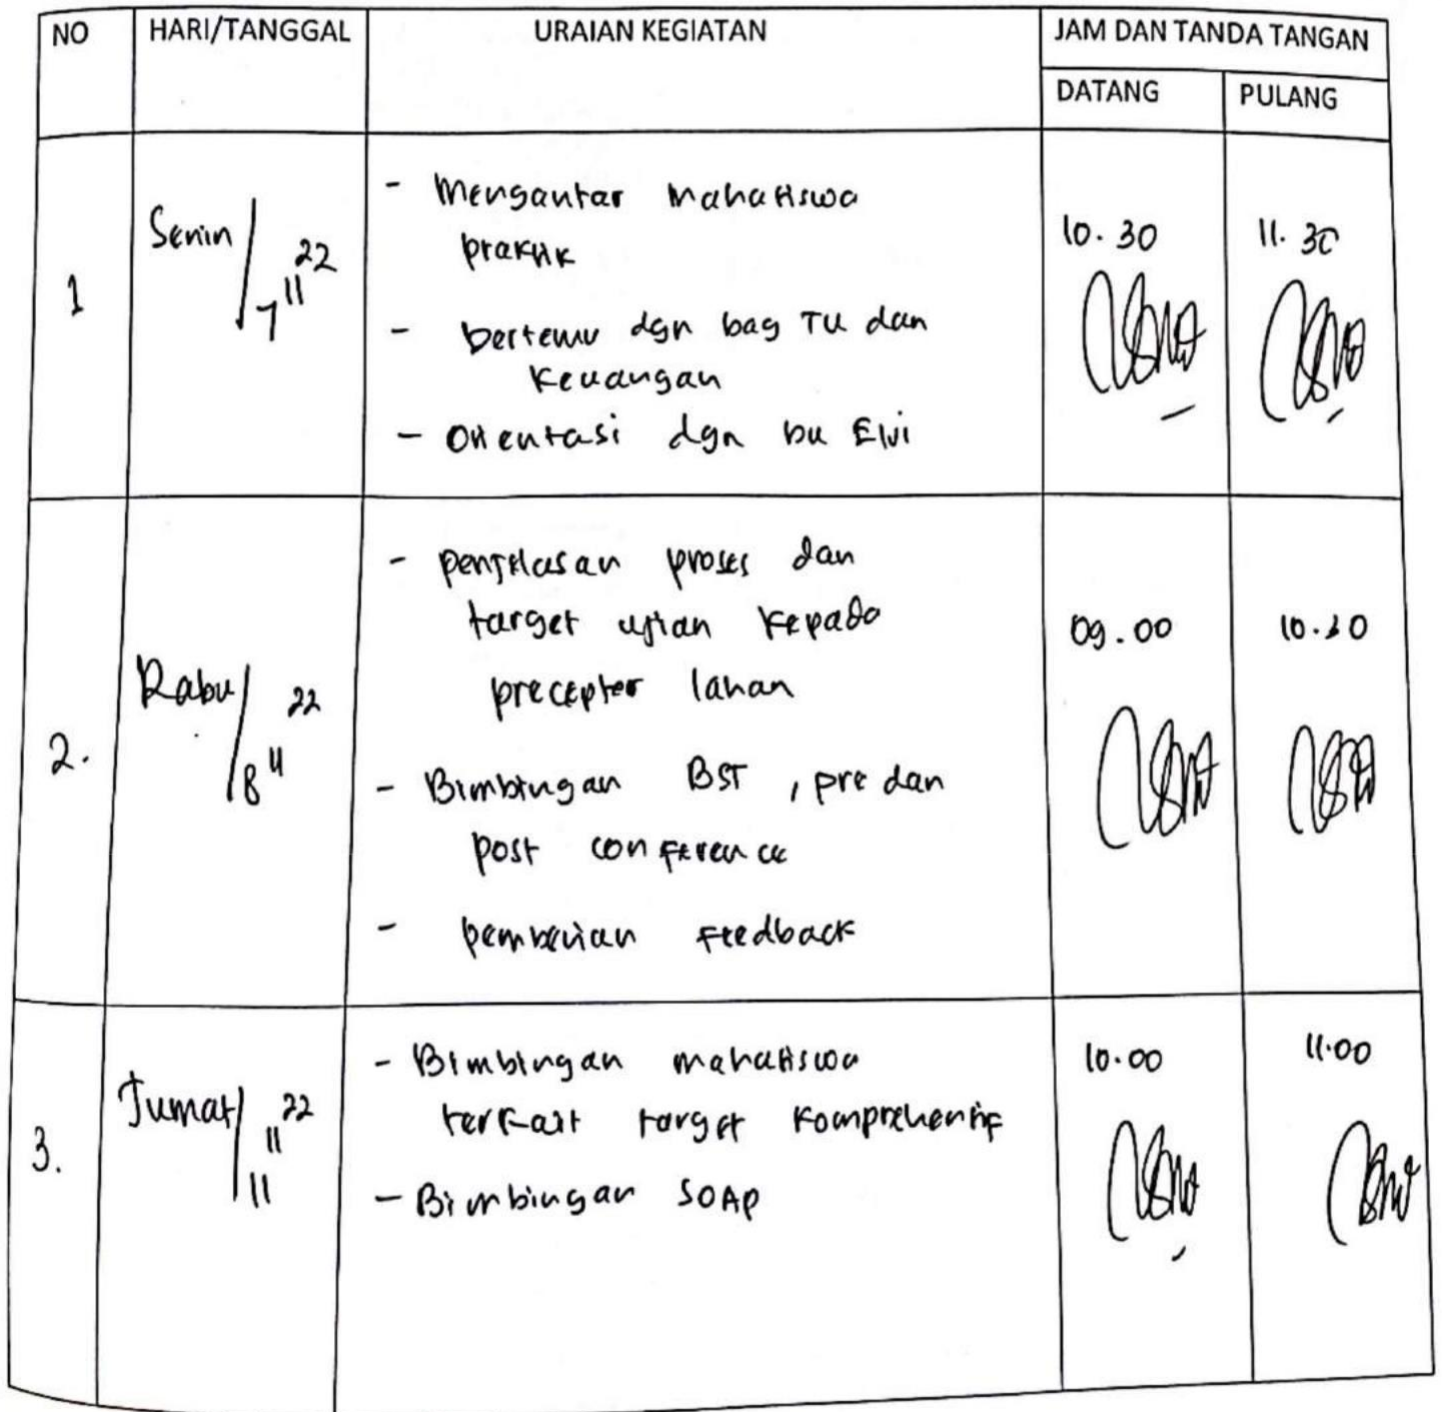 NO HARI/TANGGAL URAIAN KEGIATAN JAM DAN TANDA TANGAN
DATANG PULANG
1 Senin/7 11 22 - Mengantar mahasiswa 10.30 11.30
praktik
- bertemu dgn bag TU dan
Keuangan
- Orientasi dgn bu Elvi
2. Rabu/8 11 22 - penjelasan proses dan 09.00
target ujian kepada
preceptor lahan
- Bimbingan BST, pre dan
post conference
- pemberian Feedback
3. Jumat/11 11 22 - Bimbingan mahasiswa 10.00 11.00
terkait target Komprehensif
- Bimbingan SOAP